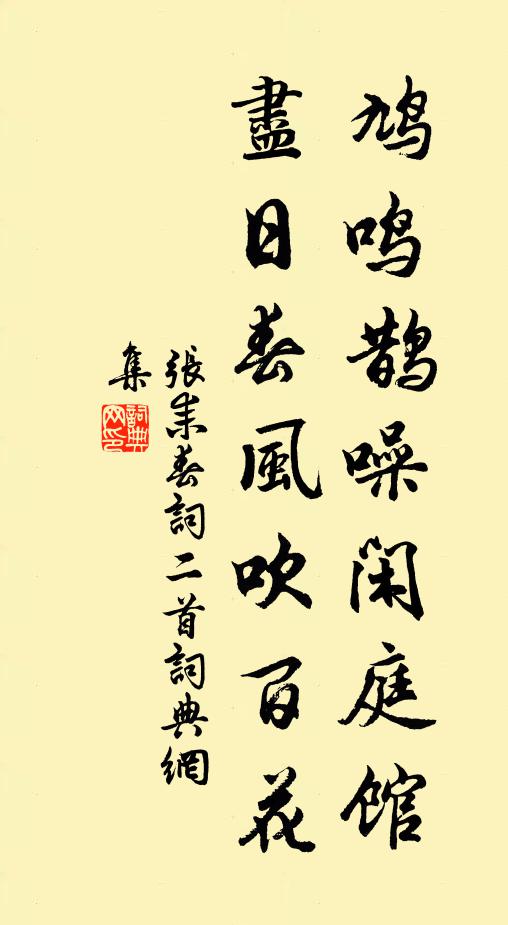 鸠鸣鹊噪闲庭馆
盡日春風吹百花
張耒春詞二首詞典網
集
詞典
网印